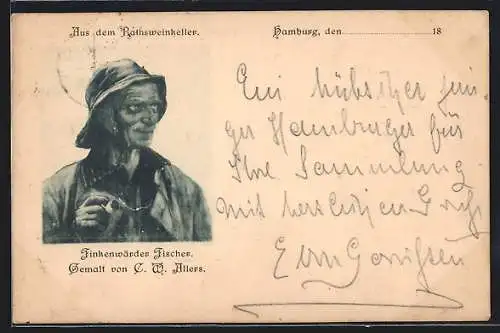 Aus dem Rathsweinkeller.
Hamburg, den 18
Ein hübscher jun-
ger Hamburger für
Ihre Sammlung
Mit herzlichen Gruß
Finkenwärder Fischer.
Gemalt von C. W. Allers.